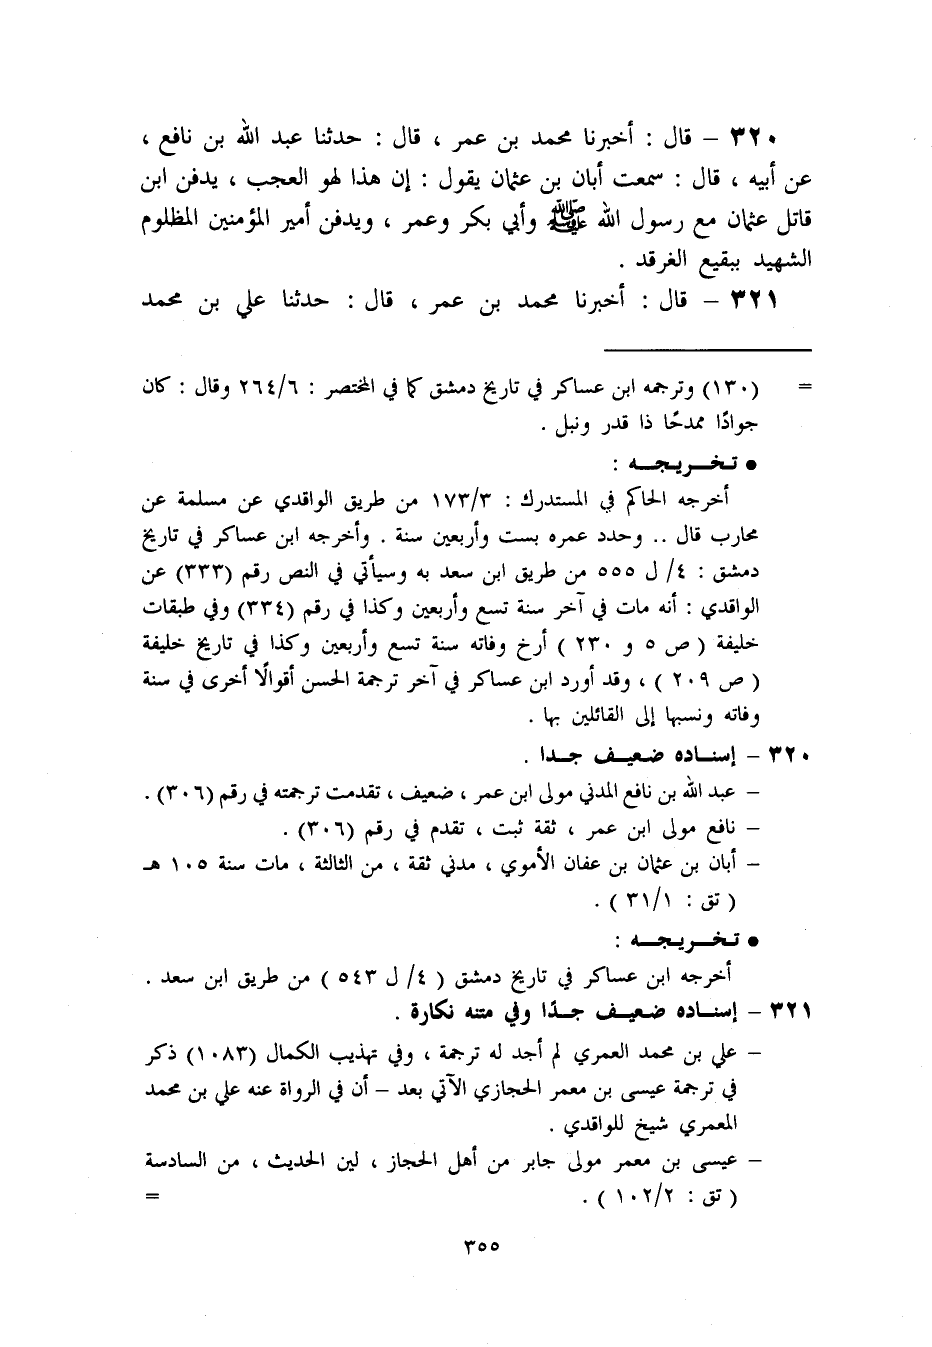 ٣٢٠ – قال : أخبرنا محمد بن عمر ، قال : حدثنا عبد الله بن نافع ،
عن أبيه ، قال : سمعت أبان بن عثمان يقول : إن هذا لهو العجب ، يدفن ابن
قاتل عثمان مع رسول الله ﷺ وأبي بكر وعمر ، ويدفن أمير المؤمنين المظلوم
الشهيد ببقيع الغرقد .
٣٢١ – قال : أخبرنا محمد بن عمر ، قال : حدثنا علي بن محمد
= (١٣٠) وترجمه ابن عساكر في تاريخ دمشق كما في المختصر : ٢٦٤/٦ وقال : كان
جوادًا ممدحًا ذا قدر ونبل .
● تـخـــريـجـــه :
أخرجه الحاكم في المستدرك : ١٧٣/٣ من طريق الواقدي عن مسلمة عن
محارب قال .. وحدد عمره بست وأربعين سنة . وأخرجه ابن عساكر في تاريخ
دمشق : ٤/ ل ٥٥٥ من طريق ابن سعد به وسيأتي في النص رقم (٣٣٣) عن
الواقدي : أنه مات في آخر سنة تسع وأربعين وكذا في رقم (٣٣٤) وفي طبقات
خليفة ( ص ٥ و ٢٣٠ ) أرخ وفاته سنة تسع وأربعين وكذا في تاريخ خليفة
( ص ٢٠٩ ) ، وقد أورد ابن عساكر في آخر ترجمة الحسن أقوالًا أخرى في سنة
وفاته ونسبها إلى القائلين بها .
٣٢٠ – إسنــاده ضعيــف جــدا .
– عبد الله بن نافع المدني مولى ابن عمر ، ضعيف ، تقدمت ترجمته في رقم (٣٠٦) .
– نافع مولى ابن عمر ، ثقة ثبت ، تقدم في رقم (٣٠٦) .
– أبان بن عثمان بن عفان الأموي ، مدني ثقة ، من الثالثة ، مات سنة ١٠٥ هـ
( تق : ٣١/١ ) .
● تـخـــريـجـــه :
أخرجه ابن عساكر في تاريخ دمشق ( ٤/ ل ٥٤٣ ) من طريق ابن سعد .
٣٢١ – إسنــاده ضعيــف جــدًا وفي متنه نكارة .
– علي بن محمد العمري لم أجد له ترجمة ، وفي تهذيب الكمال (١٠٨٣) ذكر
في ترجمة عيسى بن معمر الحجازي الآتي بعد – أن في الرواة عنه علي بن محمد
المعمري شيخ للواقدي .
– عيسى بن معمر مولى جابر من أهل الحجاز ، لين الحديث ، من السادسة
( تق : ١٠٢/٢ ) . =
٣٥٥